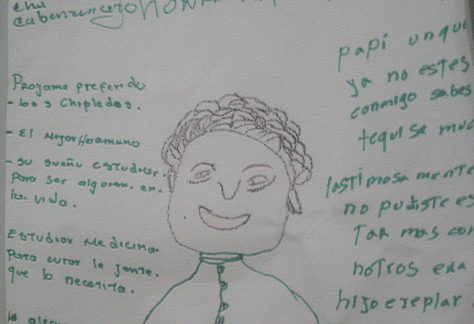 Progama preferido
- los 3 chiplados.
- El Mejor Hermano
- su sueño estudiar.
Para ser algo en
la vida.
Estudiar Medicina
Para curar la jente.
que lo necesita.
papi unque
ya no estes
conmigo sabes
tequise muc
lastimosamente
no pudiste es
Tar mas con
notros era
hijo exeplar